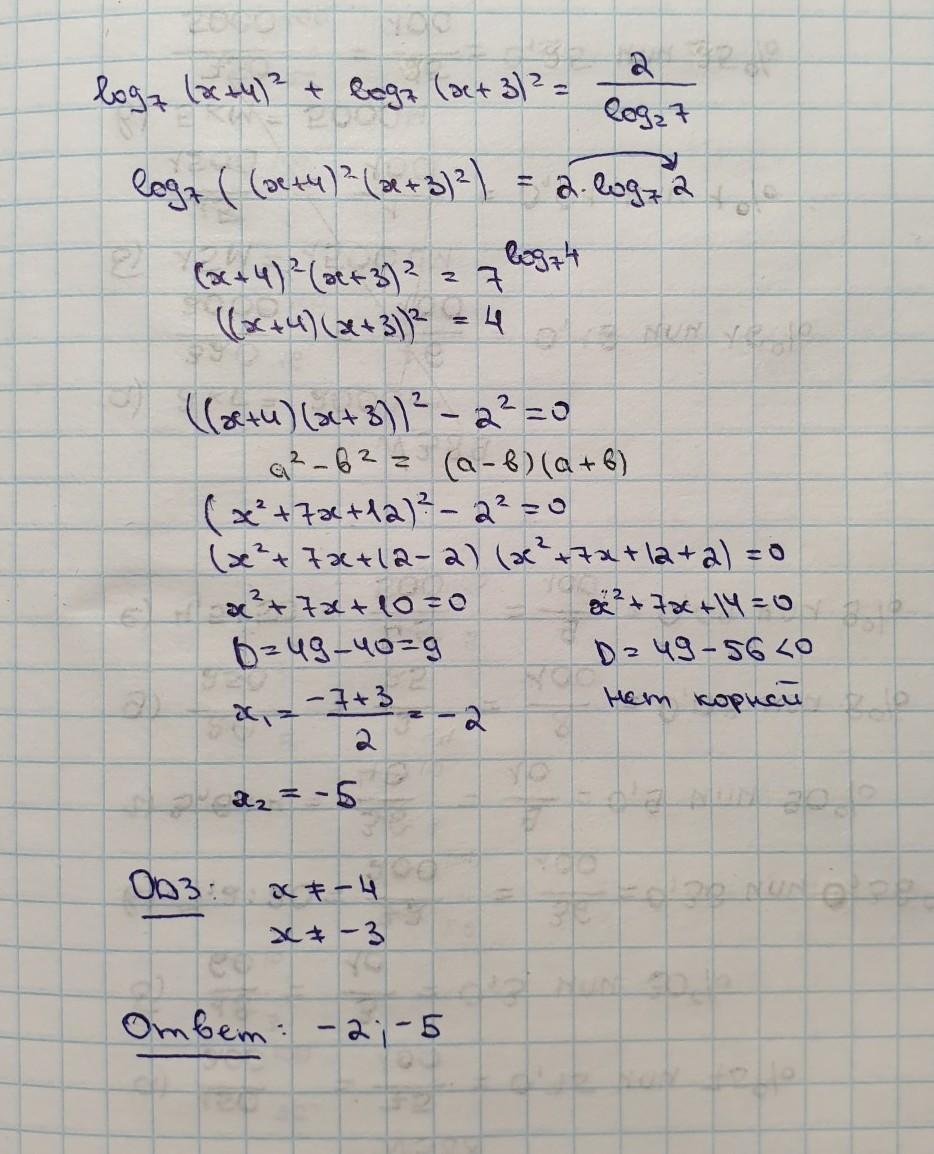 log₇ (x+4)² + log₇ (x+3)² = 2/log₂7
log₇ ( (x+4)² (x+3)² ) = 2·log₇ 2
(x+4)² (x+3)² = 7^log₇4
((x+4)(x+3))² = 4
((x+4)(x+3))² - 2² = 0
a² - b² = (a-b)(a+b)
(x² + 7x + 12)² - 2² = 0
(x² + 7x + 12 - 2) (x² + 7x + 12 + 2) = 0
x² + 7x + 10 = 0 x² + 7x + 14 = 0
D = 49 - 40 = 9 D = 49 - 56 < 0
x₁ = (-7+3)/2 = -2 нет корней
x₂ = -5
ОДЗ: x ≠ -4
x ≠ -3
Ответ: -2; -5